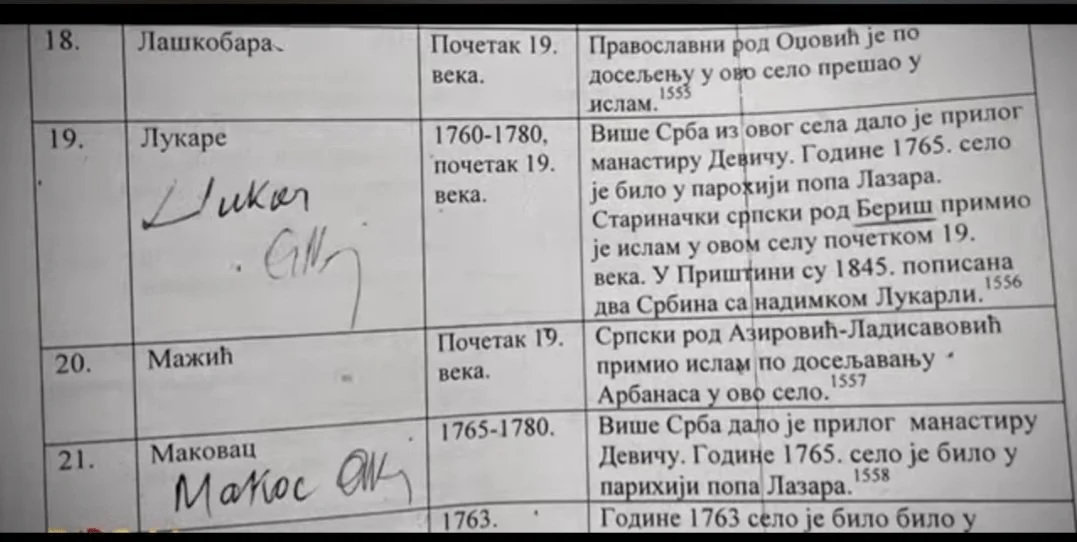 18.
Лашкобара
Почетак 19.
века.
Православни род Оџовић је по
досељењу у ово село прешао у
ислам.1553
19.
Лукаре
1760-1780,
почетак 19.
века.
Више Срба из овог села дало је прилог
манастиру Девичу. Године 1765. село
је било у парохији попа Лазара.
Стариначки српски род Бериш примио
је ислам у овом селу почетком 19.
века. У Приштини су 1845. пописана
два Србина са надимком Лукарли.1556
20.
Мажић
Почетак 19.
века.
Српски род Азировић-Ладисавовић
примио ислам по досељавању
Арбанаса у ово село.1557
21.
Маковац
Макос
1765-1780.
Више Срба дало је прилог манастиру
Девичу. Године 1765. село је било у
парихији попа Лазара.1558
1763.
Године 1763 село је било било у